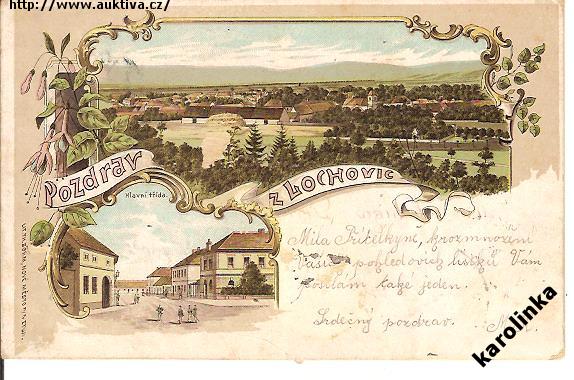 http://www.auktiva.cz/
Pozdrav
z Lochovic
Hlavní třída.
Milá Přítelkyně, k rozmnožení
Vašich pohledových lístků Vám
posílám také jeden.
Srdečný pozdrav.
karolinka